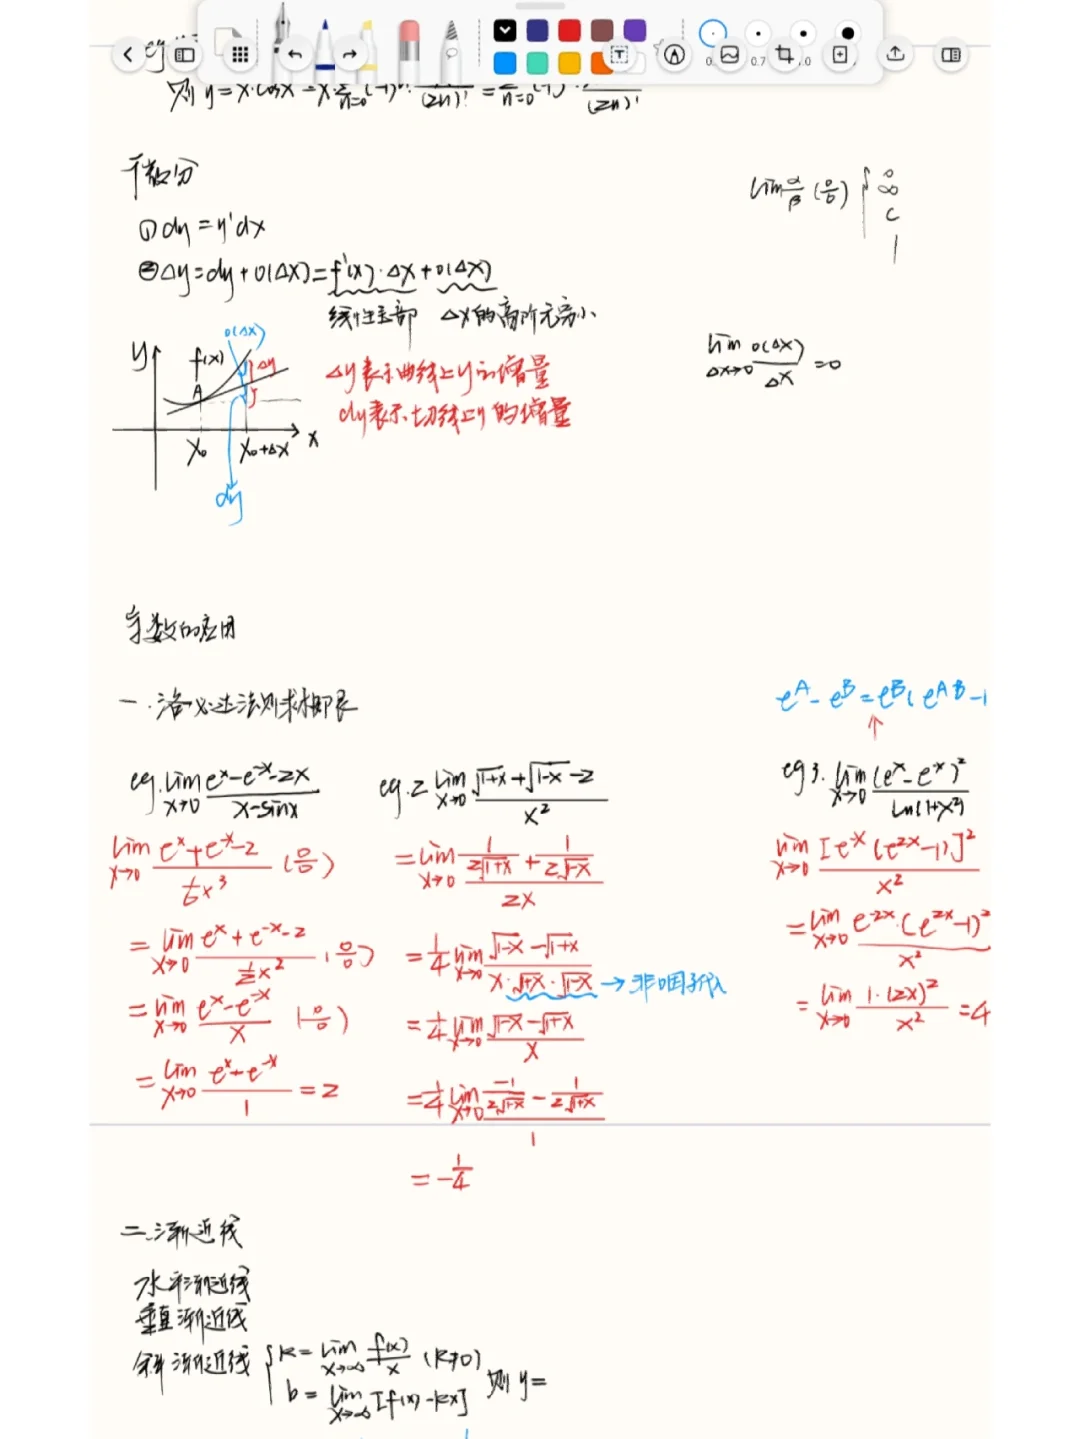 则 y=x·cosx
微分
① dy=y'dx
② Δy=dy+o(Δx)=f'(x)·Δx+o(Δx)
线性主部 Δx的高阶无穷小
lim α/β (0/0) { 0 ∞ C 1
lim Δx→0 o(Δx)/Δx =0
o(Δx)
y f(x) Δy
A
x₀ x₀+Δx x
dy
Δy表示曲线上y的增量
dy表示切线上y的增量
导数的应用
一.洛必达法则求极限
eg. lim x→0 (e^x-e^-x-2x)/(x-sinx)
lim x→0 (e^x+e^-x-2)/(1/6 x³) (0/0)
= lim x→0 (e^x+e^-x-2)/(1/2 x²) (0/0)
= lim x→0 (e^x-e^-x)/x (0/0)
= lim x→0 (e^x+e^-x)/1 =2
eg.2 lim x→0 (√1+x+√1-x-2)/x²
= lim x→0 (1/(2√1+x)+1/(2√1-x))/2x
= 1/4 lim x→0 (√1-x-√1+x)/(x·√1+x·√1-x) →非0因子代入
= 1/4 lim x→0 (√1-x-√1+x)/x
= 1/4 lim x→0 (-1/(2√1-x)-1/(2√1+x))/1
= -1/4
e^A-e^B=e^B(e^A-B-1
eg3. lim x→0 (e^x-e^-x)²/ln(1+x²)
lim x→0 [e^-x(e^2x-1)]²/x²
= lim x→0 e^-2x·(e^2x-1)²/x²
= lim x→0 1·(2x)²/x² =4
二.渐近线
水平渐近线
垂直渐近线
斜渐近线 { k=lim x→∞ f(x)/x (k≠0)
b=lim x→∞ [f(x)-kx] 则 y=